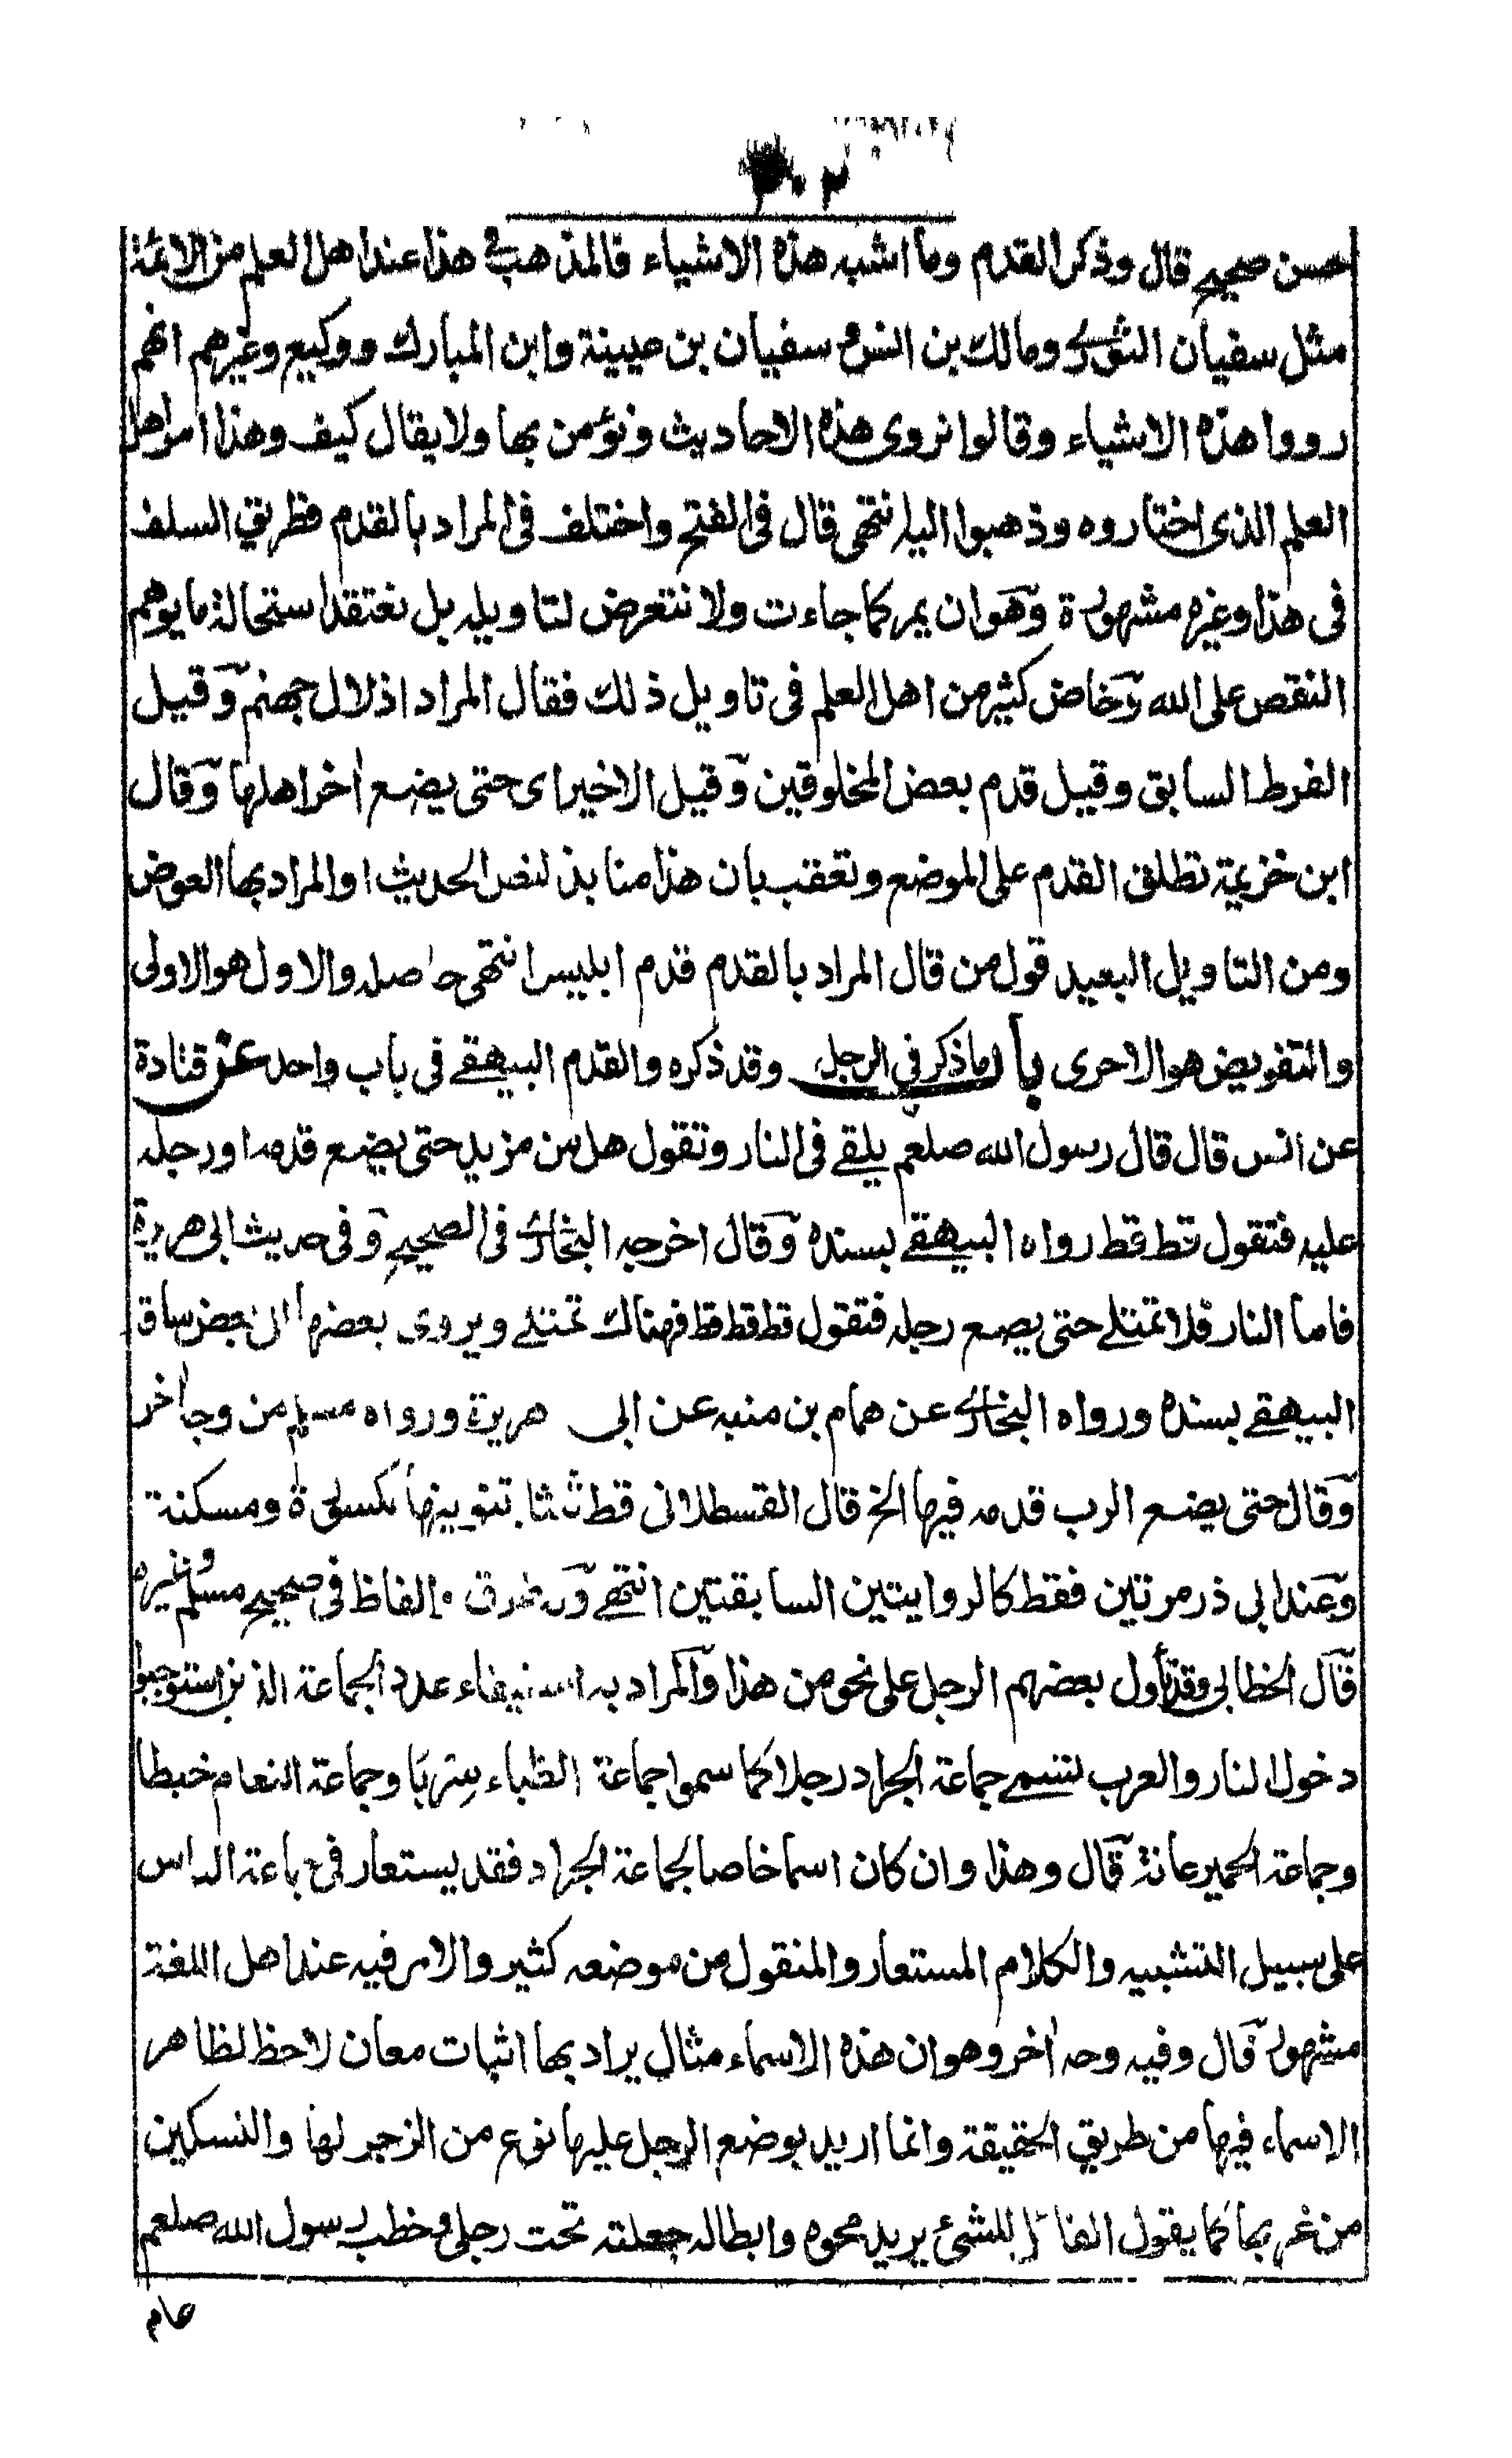 حسن صحيح قال وذكر القدم وما اشبه هذه الاشياء فالمذهب في هذا عند اهل العلم من الائمة
مثل سفيان الثوري ومالك بن انس و سفيان بن عيينة وابن المبارك ووكيع وغيرهم انهم
رووا هذه الاشياء وقالوا نروى هذه الاحاديث ونؤمن بها ولا يقال كيف وهذا امر اهل
العلم الذى اختاروه وذهبوا اليه انتهى قال فى الفتح واختلف فى المراد بالقدم فطريق السلف
فى هذا وغيره مشهورة وهو ان يمر كما جاءت ولا نتعرض لتاويله بل نعتقد استحالة ما يوهم
النقص على الله وخاض كثير من اهل العلم فى تاويل ذلك فقال المراد اذلال جهنم وقيل
الفرط السابق وقيل قدم بعض المخلوقين وقيل الاخير اى حتى يضع اخر اهلها وقال
ابن خزيمة تطلق القدم على الموضع وتعقب بان هذا منابذ لنص الحديث او المراد بها العوض
ومن التاويل البعيد قول من قال المراد بالقدم قدم ابليس انتهى حاصله والاول هو الاولى
والتفويض هو الاحرى باب ما ذكر في الرجل وقد ذكره والقدم البيهقي فى باب واحد عن قتادة
عن انس قال قال رسول الله صلعم يلقے فى النار وتقول هل من مزيد حتى يضع قدمه او رجله
عليه فتقول قط قط رواه البيهقے بسنده وقال اخرجه البخارى فى الصحيح وفى حديث ابى هريرة
فاما النار فلا تمتلے حتى يضع رجله فتقول قط قط قط فهناك تمتلے ويزوى بعضها الى بعض ساق
البيهقے بسنده ورواه البخارى عن همام بن منبه عن ابى هريرة ورواه مسلم من وجه اخر
وقال حتى يضع الرب قدمه فيها الخ قال القسطلانى قط ثلثا بتنوينها مكسورة ومسكنة
وعند ابى ذر مرتين فقط كالروايتين السابقتين انتهے وله طرق والفاظ فى صحيح مسلم وغيره
قال الخطابى وقد تأول بعضهم الرجل على نحو من هذا والمراد به استيفاء عدد الجماعة الذين استوجبوا
دخول النار والعرب تسمے جماعة الجراد رجلا كما سموا جماعة الظباء سِربًا وجماعة النعام خيطا
وجماعة الحمير عانة قال وهذا وان كان اسما خاصا لجماعة الجراد فقد يستعار فى جماعة الناس
على سبيل التشبيه والكلام المستعار والمنقول من موضعه كثير والامر فيه عند اهل اللغة
مشهور قال وفيه وجه اخر وهو ان هذه الاسماء مثال يراد بها اثبات معان لاحظ لظاهر
الاسماء فيها من طريق الحقيقة وانما اريد بوضع الرجل عليها نوع من الزجر لها والتسكين
من غربها كما يقول القائل للشئ يريد محوه وابطاله جعلته تحت رجلى وخطب رسول الله صلعم
عام